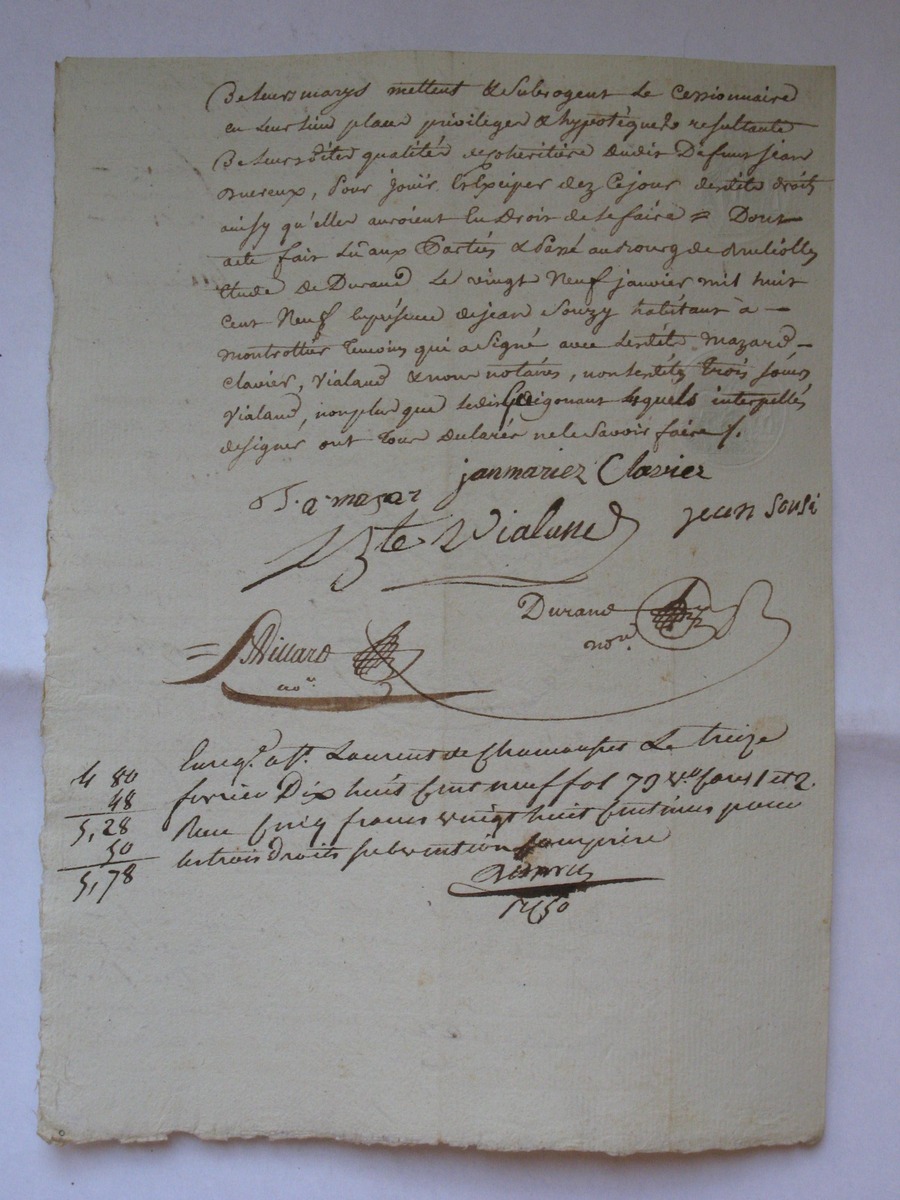 De leurs marys mettent & subrogent le cessionnaire
en leur lieu place privileges & hypotèques resultants
De leursdites qualités de coheritière dudit Defunt jean
pour jouir et Exciper dez Ce jour desdits droits
ainsy qu'elles auroient En Droit de le faire = Dont
acte fait Lû aux Parties & Passé au Bourg de Brulliolles
Etude de Durand Le vingt Neuf janvier mil huit
cent Neuf En présence de jean Souzy habitant à
montrottier temoins qui a Signé avec lesdits mazard
Clavier, vialand & nous notaires, non lesdites trois sœurs
vialand, non plus que ledit quels interpellés
de signer ont Tous declarés ne le Savoir faire /.
janmariez Clavier
a mazar
jean Sousi
Bte Vialand
Durand
nore.
Villard
nore.
Enregé. a St. Laurent de Chamousset Le treize
4 80
fevrier Dix huit Cent neuf fol 79 vo Cases 1 et 2.
48
5,28
Reçu Cinq francs vingt huit Centimes pour
50
les trois droits subvention Comprise
5,78